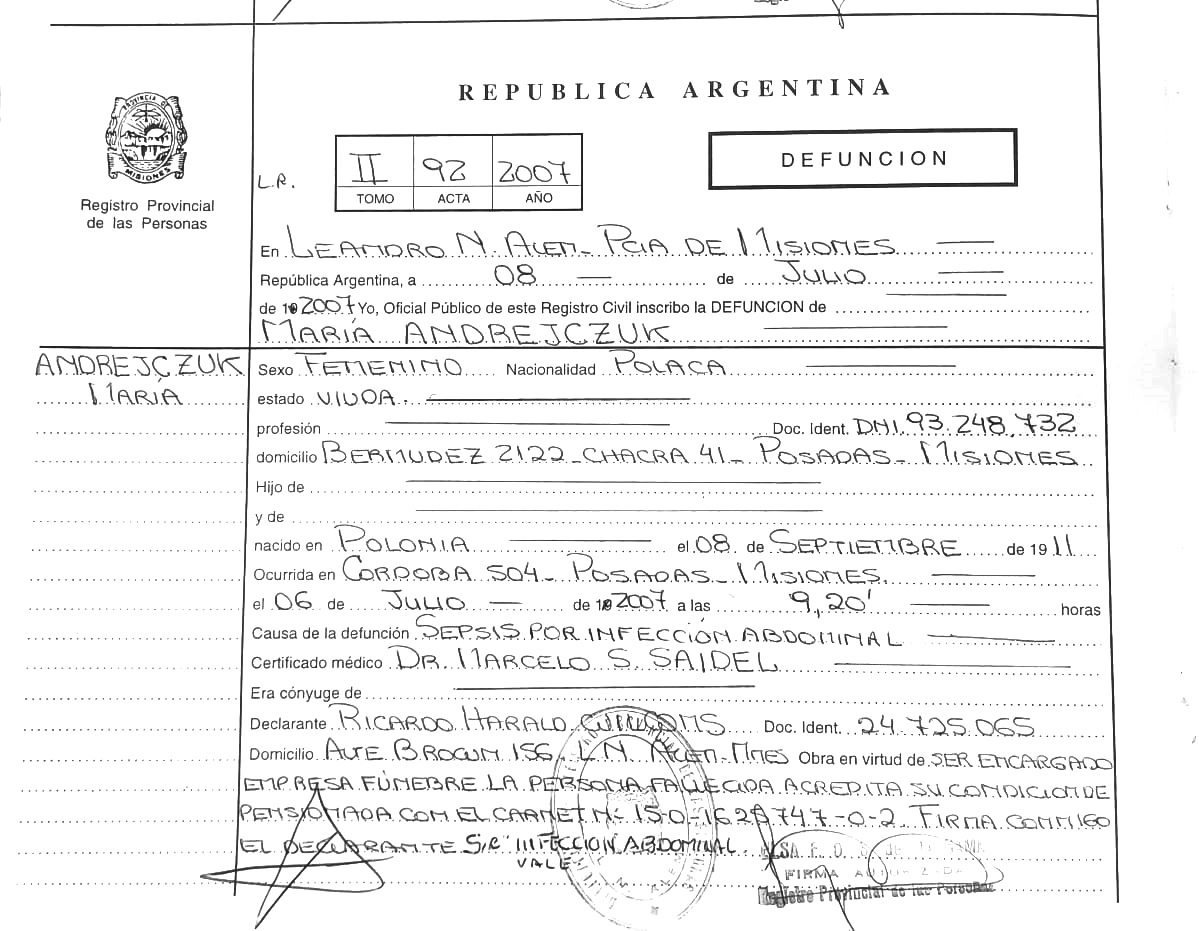 REPUBLICA ARGENTINA
PROVINCIA DE MISIONES
Registro Provincial
de las Personas
DEFUNCION
L.R. II 92 2007
TOMO ACTA AÑO
En LEANDRO N. ALEM - PCIA DE MISIONES
República Argentina, a 08 de JULIO
de 2007 Yo, Oficial Público de este Registro Civil inscribo la DEFUNCION de
MARÍA ANDREJCZUK
ANDREJCZUK
MARÍA
Sexo FEMENINO Nacionalidad POLACA
estado VIUDA.
profesión Doc. Ident. DNI. 93.248.732
domicilio BERMUDEZ 2122 - CHACRA 41 - POSADAS - MISIONES
Hijo de
y de
nacido en POLONIA el 08 de SEPTIEMBRE de 1911
Ocurrida en CORDOBA 504 - POSADAS - MISIONES.
el 06 de JULIO de 2007 a las 9,20' horas
Causa de la defunción SEPSIS POR INFECCIÓN ABDOMINAL
Certificado médico DR. MARCELO S. SAIDEL
Era cónyuge de
Declarante RICARDO HARALD Doc. Ident. 24.725.065
Domicilio AVTE BROWN 156 - L.N. ALEM - MNES Obra en virtud de SER ENCARGADO
EMPRESA FÚNEBRE LA PERSONA FALLECIDA ACREDITA SU CONDICION DE
PENSIONADA CON EL CARNET Nº 15-0-1628747-0-2 FIRMA CONMIGO
EL DECLARANTE S/R "INFECCION ABDOMINAL.
VALE
FIRMA
Registro Provincial de las Personas